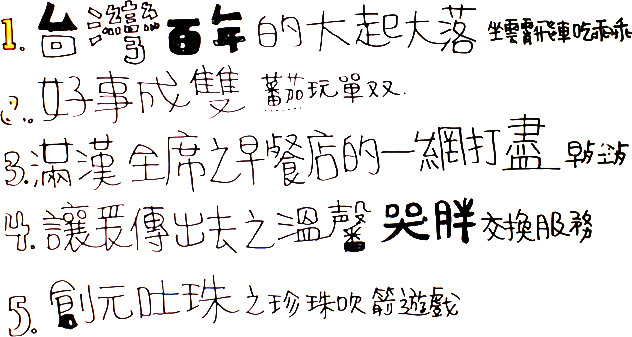 1. 台灣百年的大起大落 坐雲霄飛車吃乖乖
2. 好事成雙 蕃茄玩單双.
3. 滿漢全席之早餐店的一網打盡
4. 讓愛傳出去之溫馨哭胖交換服務
5. 創元吐珠之珍珠吹箭遊戲